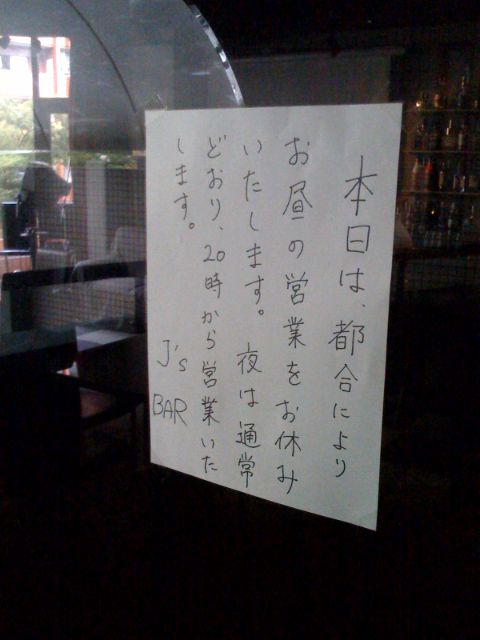 本日は、都合により
お昼の営業をお休み
いたします。夜は通常
どおり、20時から営業いた
します。
J's
BAR